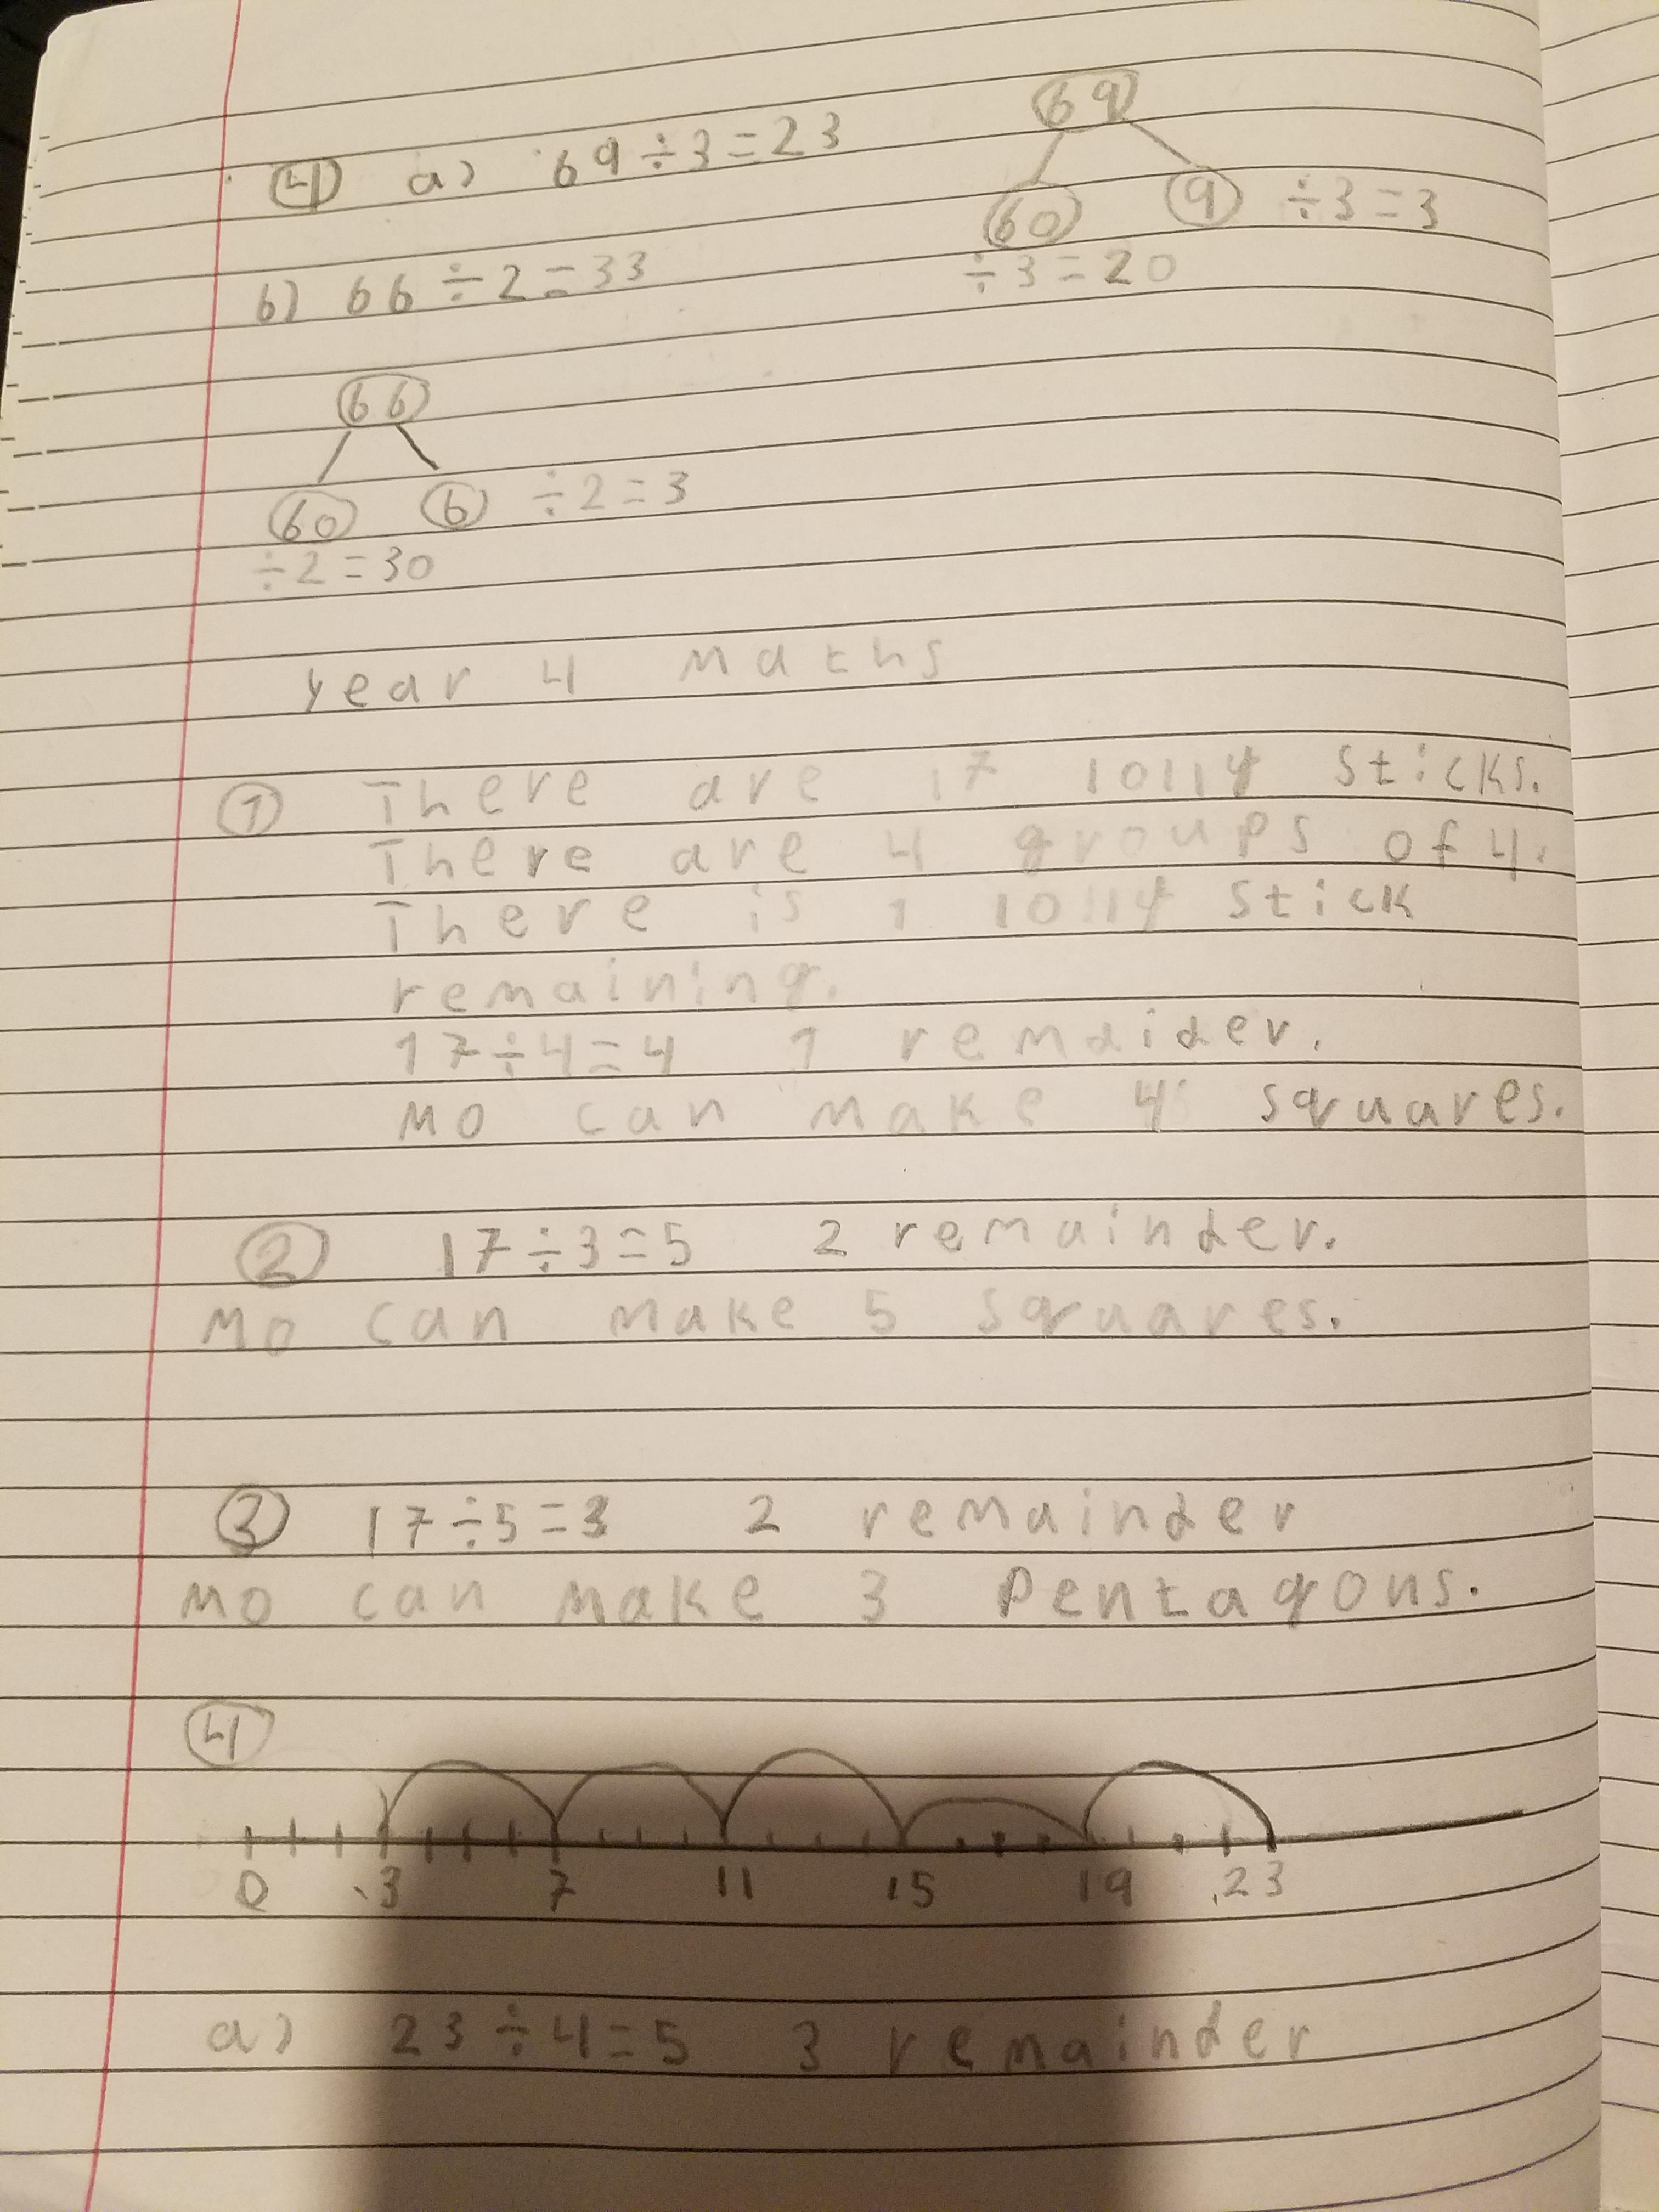 4 a) 69÷3=23
69
60 9 ÷3=3
÷3=20
b) 66÷2=33
66
60 6 ÷2=3
÷2=30
year 4 maths
1 There are 17 lolly sticks.
There are 4 groups of 4.
There is 1 lolly stick
remaining.
17÷4=4 1 remaider.
Mo can make 4 squares.
2 17÷3=5 2 remainder.
Mo can make 5 squares.
3 17÷5=3 2 remainder
Mo can make 3 Pentagons.
4
0 3 7 11 15 19 23
a) 23÷4=5 3 remainder